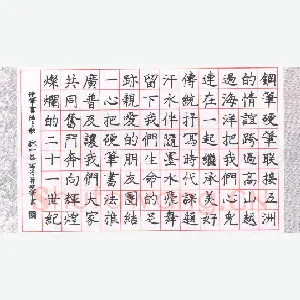 鋼筆硬筆聯接五洲
的情誼跨過高山越
過海洋把我們心兒
連在一起繼承美好
傳統抒寫時代課題
汗水伴隨墨水飛舞
留下我們生命的足
跡親愛的朋友團結
一心把硬筆書法推
廣普及讓我們大家
共同奮鬥奔向輝煌
燦爛的二十一世紀